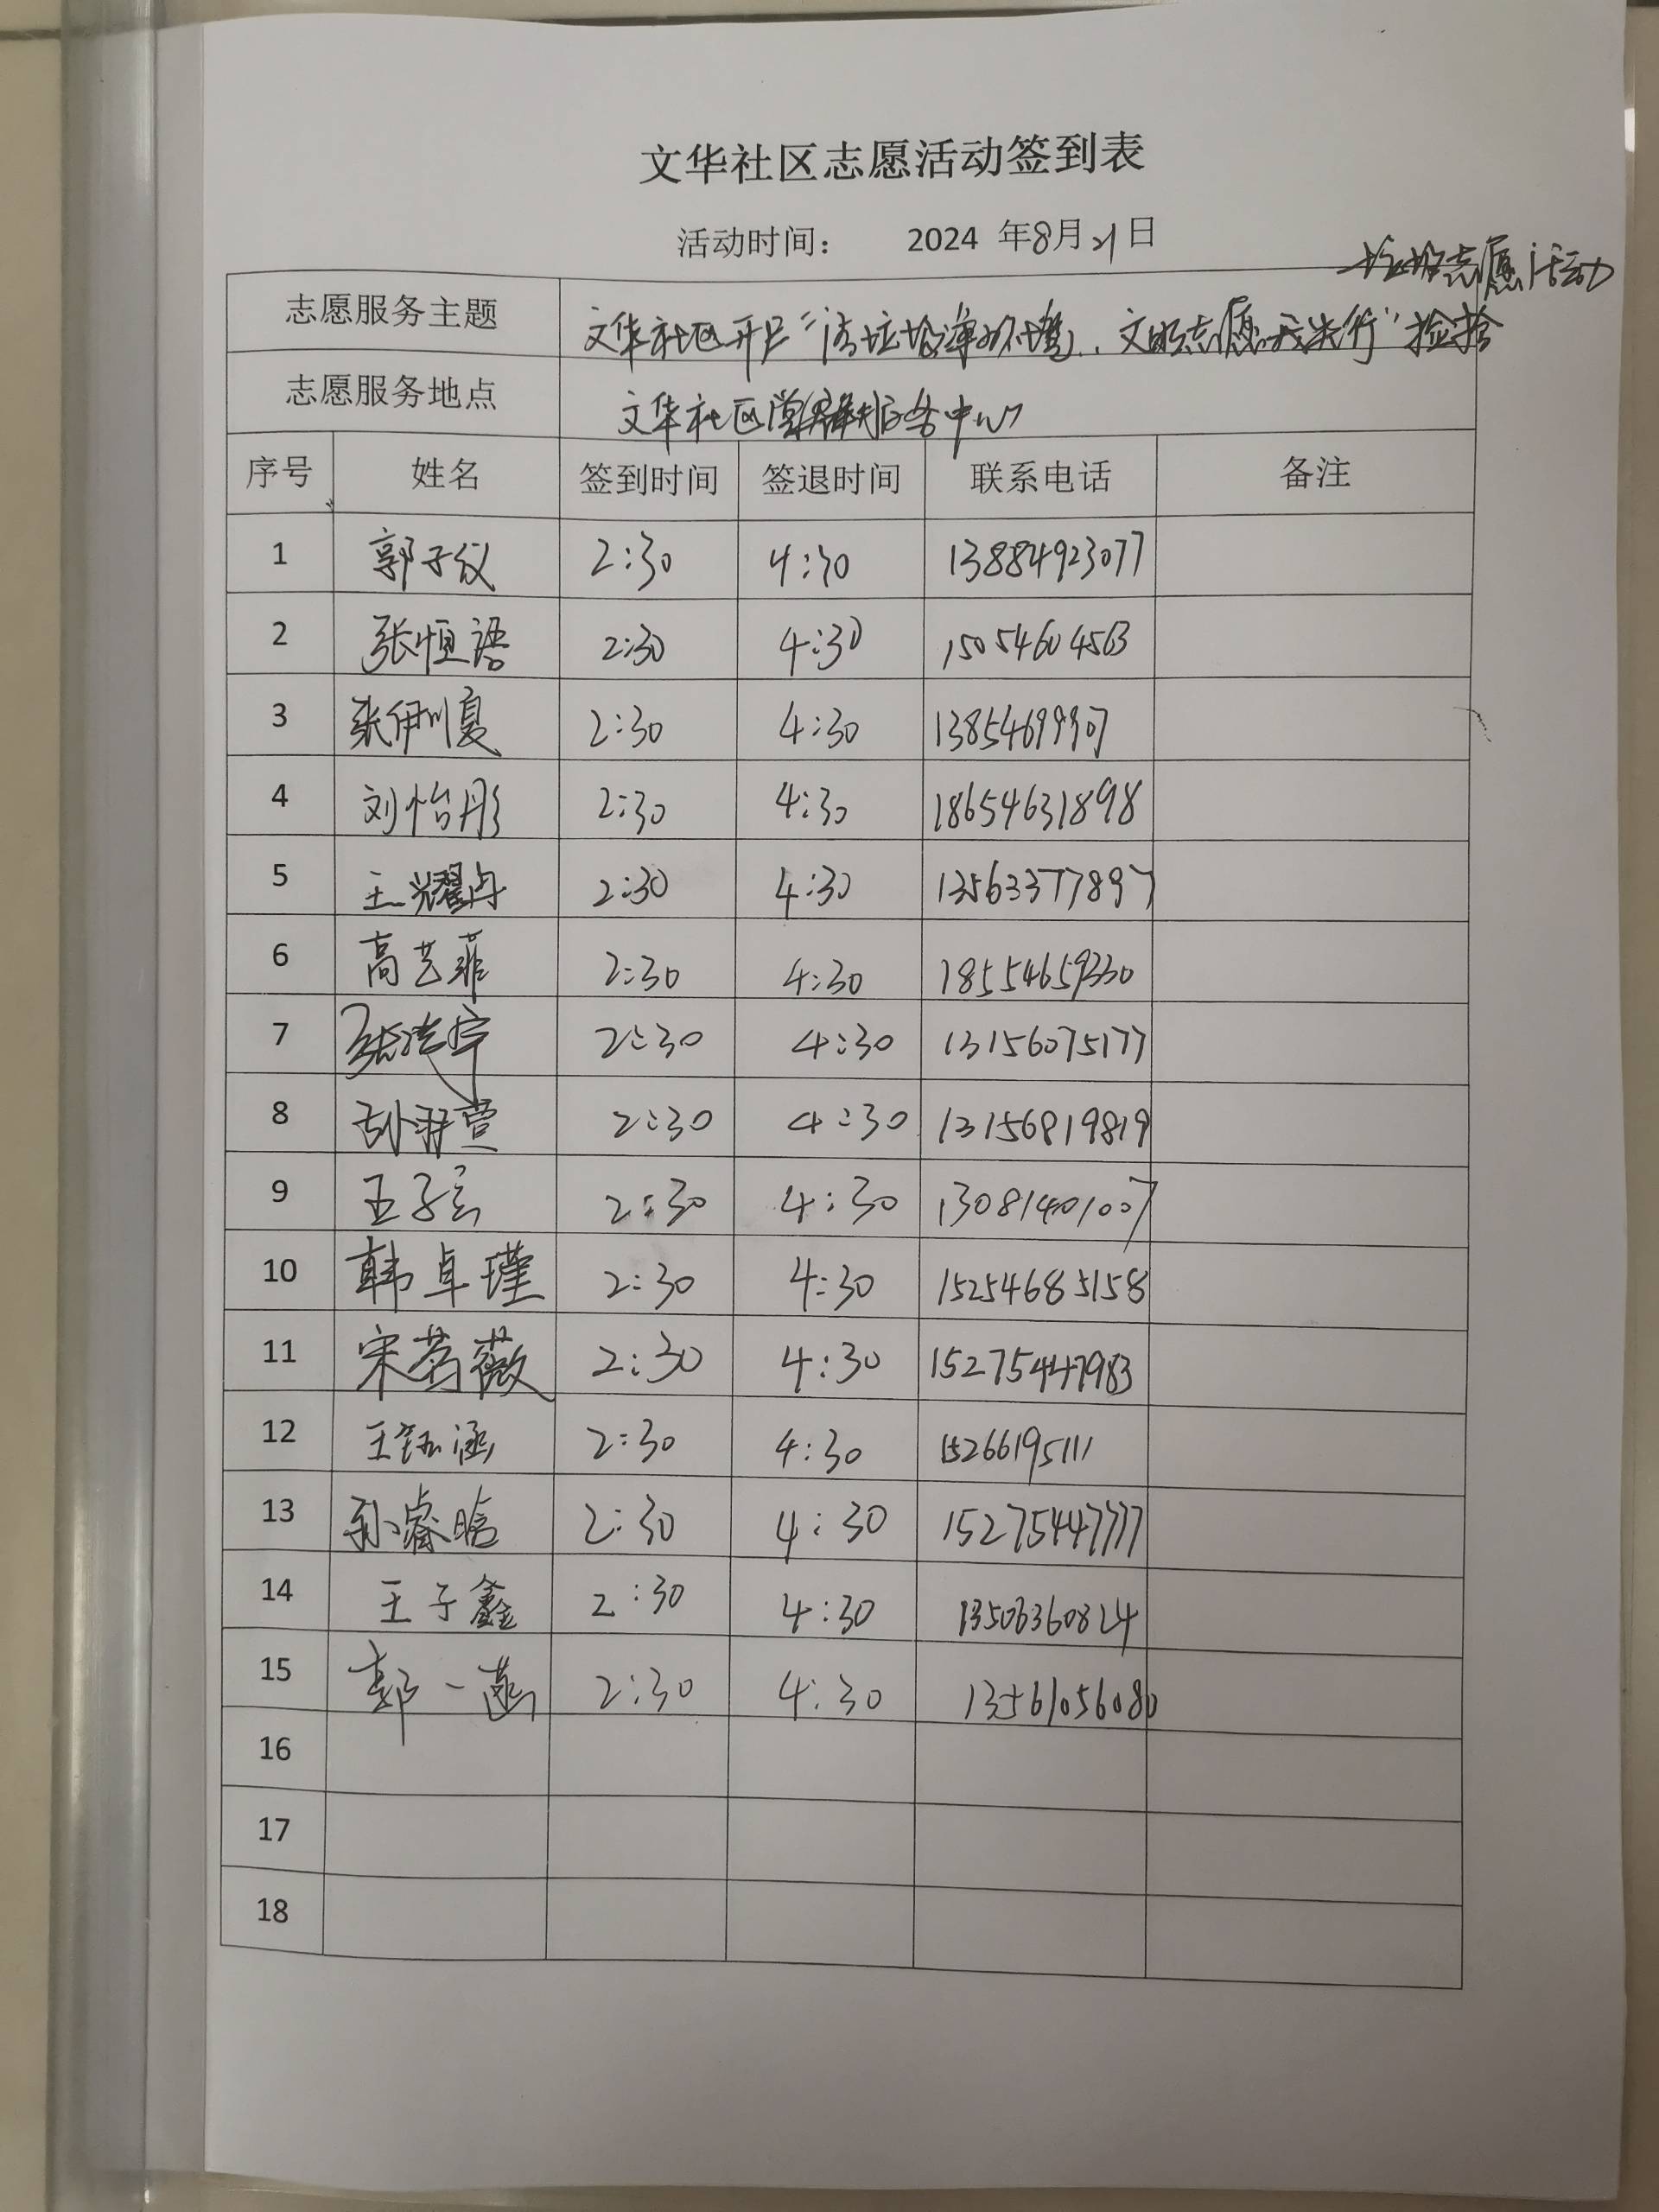 文华社区志愿活动签到表
活动时间： 2024 年8月21日
垃圾志愿活动
志愿服务主题 文华社区开展“清垃圾净环境，文明志愿我先行”捡拾
志愿服务地点 文华社区党群服务中心
序号 姓名 签到时间 签退时间 联系电话 备注
1 郭子仪 2:30 4:30 13884923077
2 张恒语 2:30 4:30 15054604563
3 张伊夏 2:30 4:30 13854699907
4 刘怡彤 2:30 4:30 18654631898
5 王耀冉 2:30 4:30 13563377897
6 高艺菲 2:30 4:30 18554659330
7 张浩宇 2:30 4:30 13156075177
8 孙羽萱 2:30 4:30 13156819819
9 王子言 2:30 4:30 13081401007
10 韩卓瑾 2:30 4:30 15254685158
11 宋茑薇 2:30 4:30 15275447983
12 王钰涵 2:30 4:30 15266195111
13 孙睿晗 2:30 4:30 15275447777
14 王子鑫 2:30 4:30 13506360824
15 郭一菡 2:30 4:30 13561056080
16
17
18